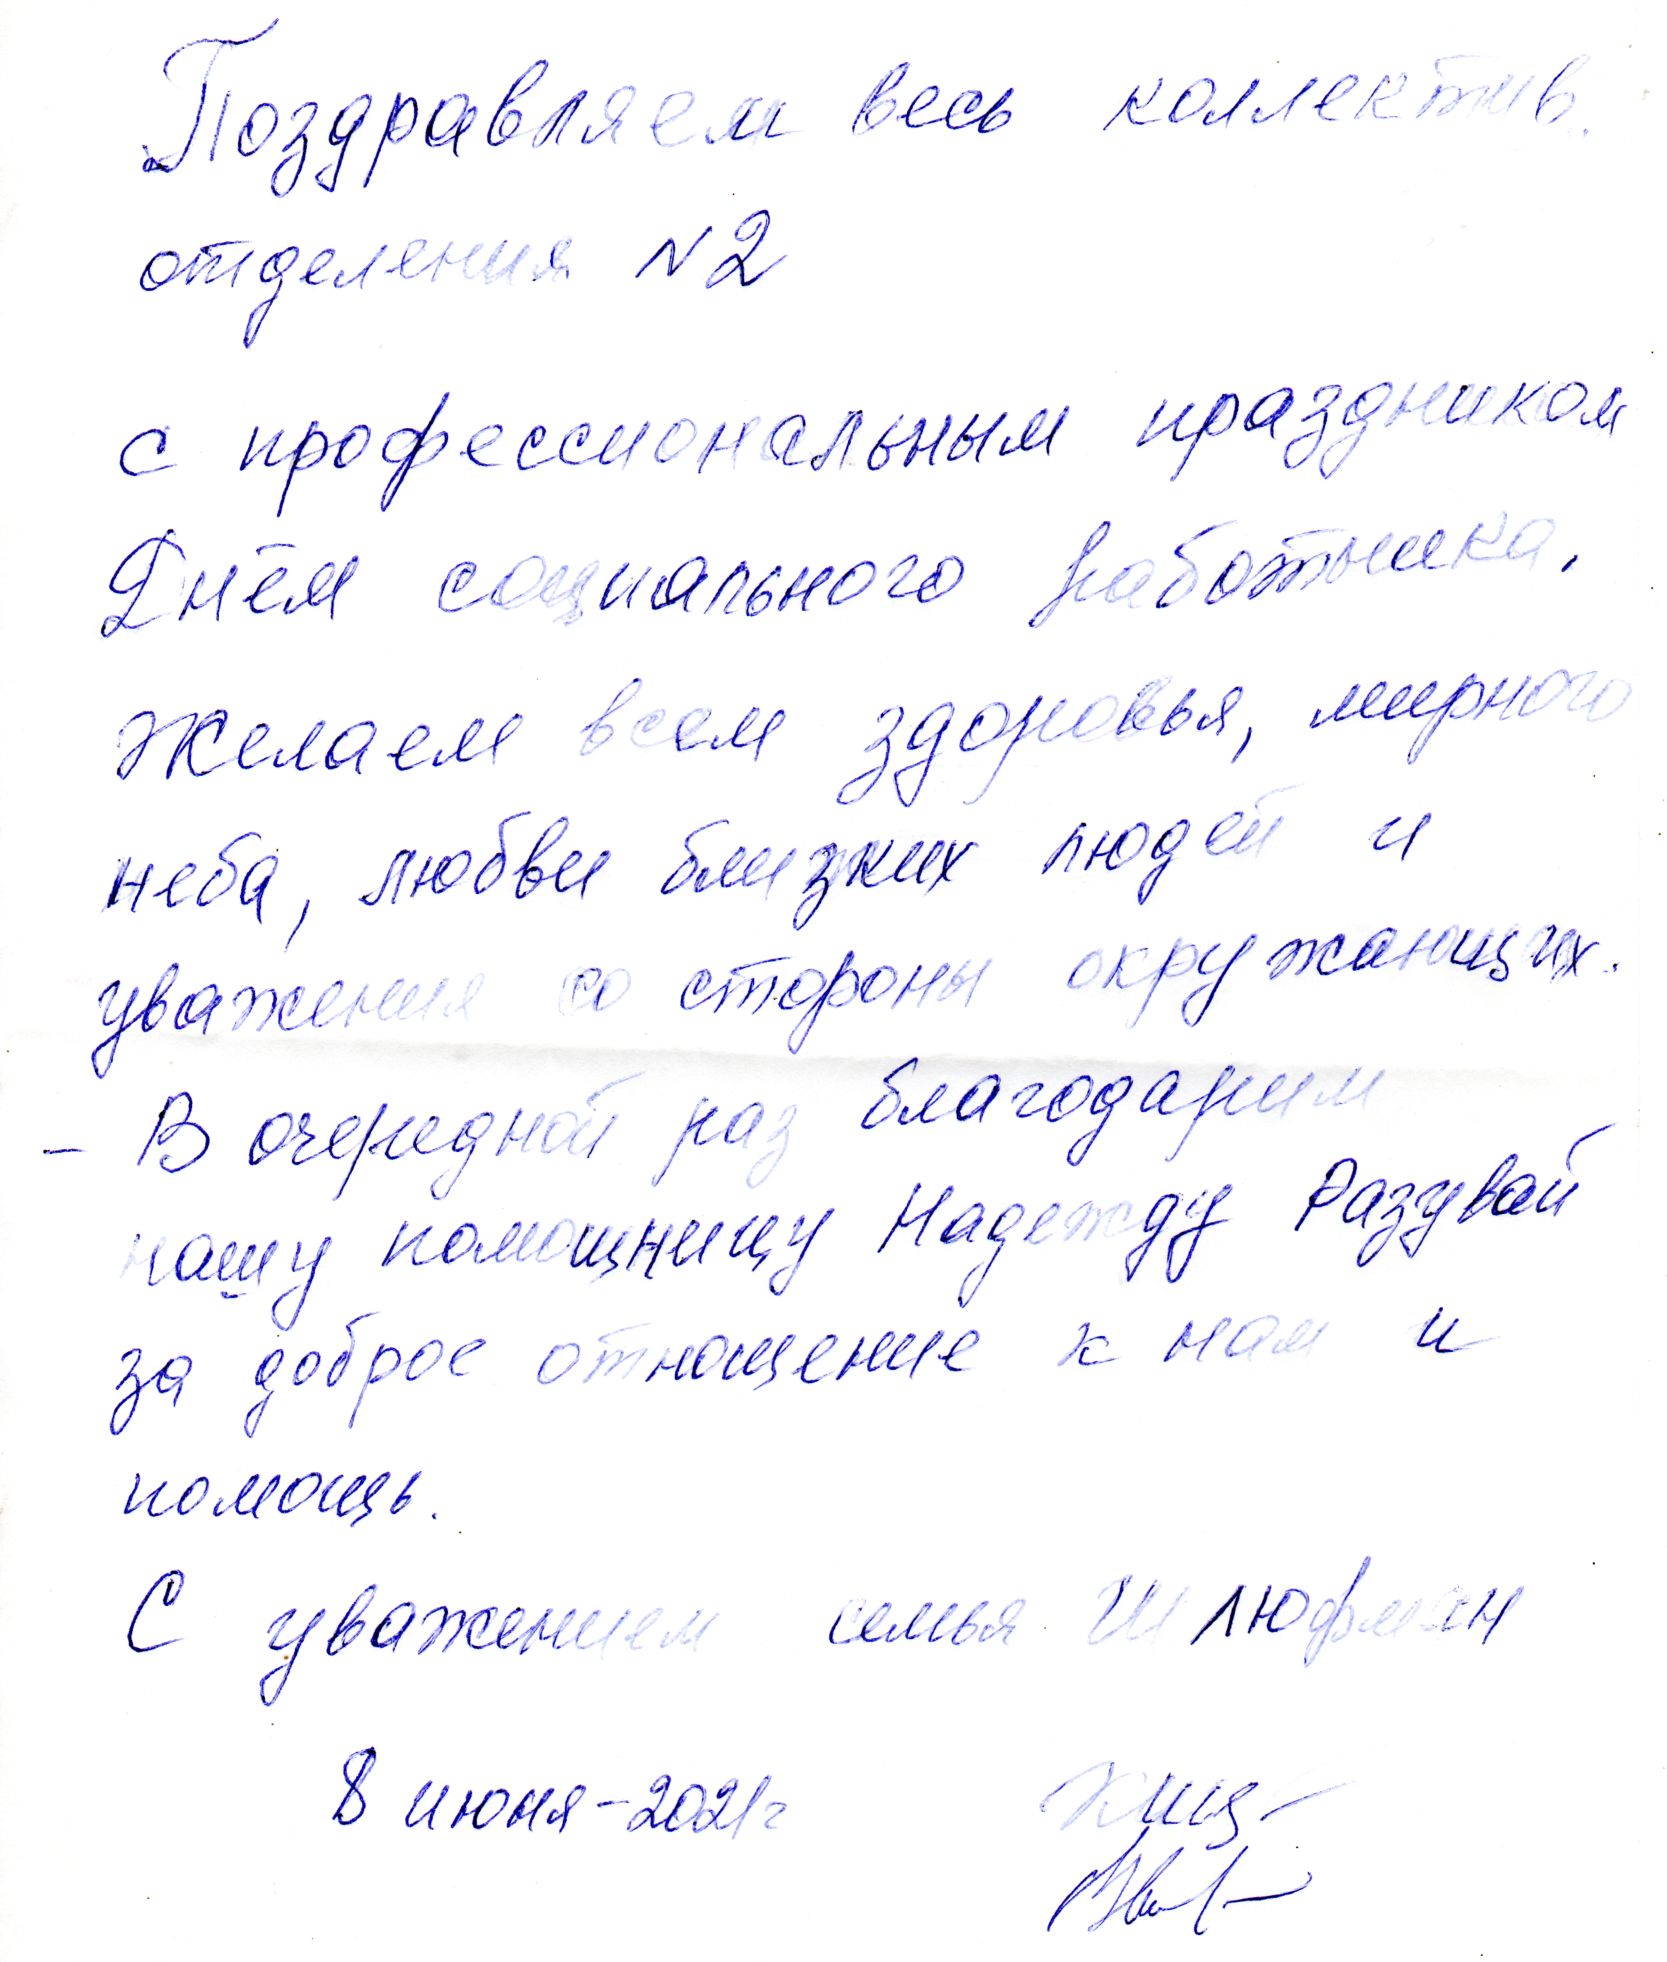 Поздравляем весь коллектив
отделения N2
с профессиональным праздником
Днём социального работника.
Желаем всем здоровья, мирного
неба, любви близких людей и
уважения со стороны окружающих.
- В очередной раз благодарим
нашу помощницу Надежду Разувай
за доброе отношение к нам и
помощь.
С уважением семья Шлюфман
8 июня-2021г